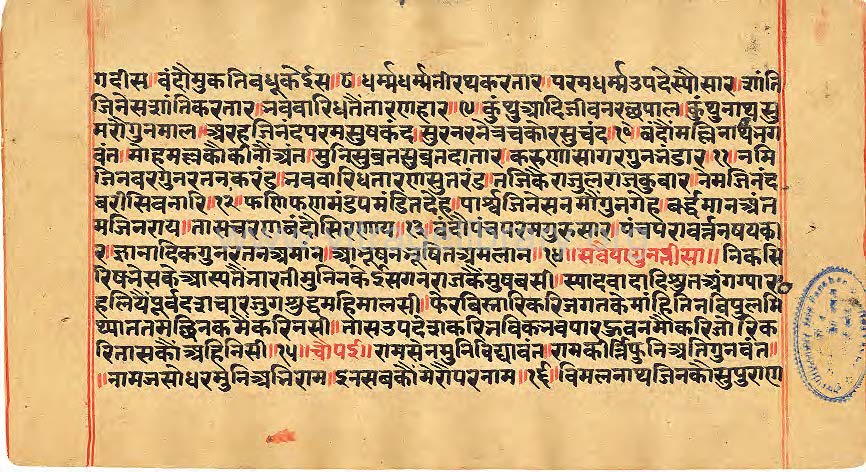 गदीस ॥ वंदौ मुकतिवधू के ईस ॥ ८ ॥ धर्म्मधर्म्मतीरथकरतार ॥ परमधर्म्मउपदेस्यौ सार ॥ शांति
जिनेस शांतिकरतार ॥ भववारिध तै तारणहार ॥ ९ ॥ कुंथुआदिजीवन रछपाल ॥ कुंथुनाथ सु
मरौ गुनमाल ॥ अरहजिनंद परमसुषकंद ॥ सुरनरनेत्रचकोरसुचंद ॥ १० ॥ वंदौं मल्लिनाथ भग
वंत ॥ मोहमल्ल कौ कीनौ अंत ॥ मुनिसुव्रत सुव्रतदातार ॥ करुणासागर गुनभंडार ॥ ११ ॥ नमि
जिनवर गुनरतनकरंड ॥ भववारिधतारण सुतरंड ॥ तजि कै राजुल राजकुवार ॥ नेमजिनंद
वरी सिवनारि ॥ १२ ॥ फणिफणमंडपमंडितदेह ॥ पार्श्वजिनेस नमौं गुनगेह ॥ वर्द्धमान अंत
म जिनराय ॥ तास चरण वंदौ सिरणाय ॥ १३ ॥ वंदौ पंच परमगुरु सार ॥ पंच परावर्त्तन षयका
र ॥ ज्ञानादिकगुनरतन अमान ॥ आभूषनभूषित अमलान ॥ १४ ॥ सवैया गुनतीसा ॥ निकसि
रिषभेस के आस्य तै भारती मुनिनके ईस गनराज कै मुष बसी ॥ स्यादवादादिश्रुत अंग ग्यार
ह लियै पूर्व दश चार जुग शुद्ध महिमा लसी ॥ फेर विस्तारि करि जगत के मांहि तिन विपुल मि
थ्यातत
रि तास कौं अहिनिसी ॥ १५ ॥ चौपई ॥ रामसेन मुनि विद्यावंत ॥ रामकीर्त्ति फुनि अति गुनवंत ॥
॥ नाम जसोधर मुनि अभिराम ॥ इन सब कौं मेरौ परनाम ॥ १६ ॥ विमलनाथजिन कौ सु पुराण